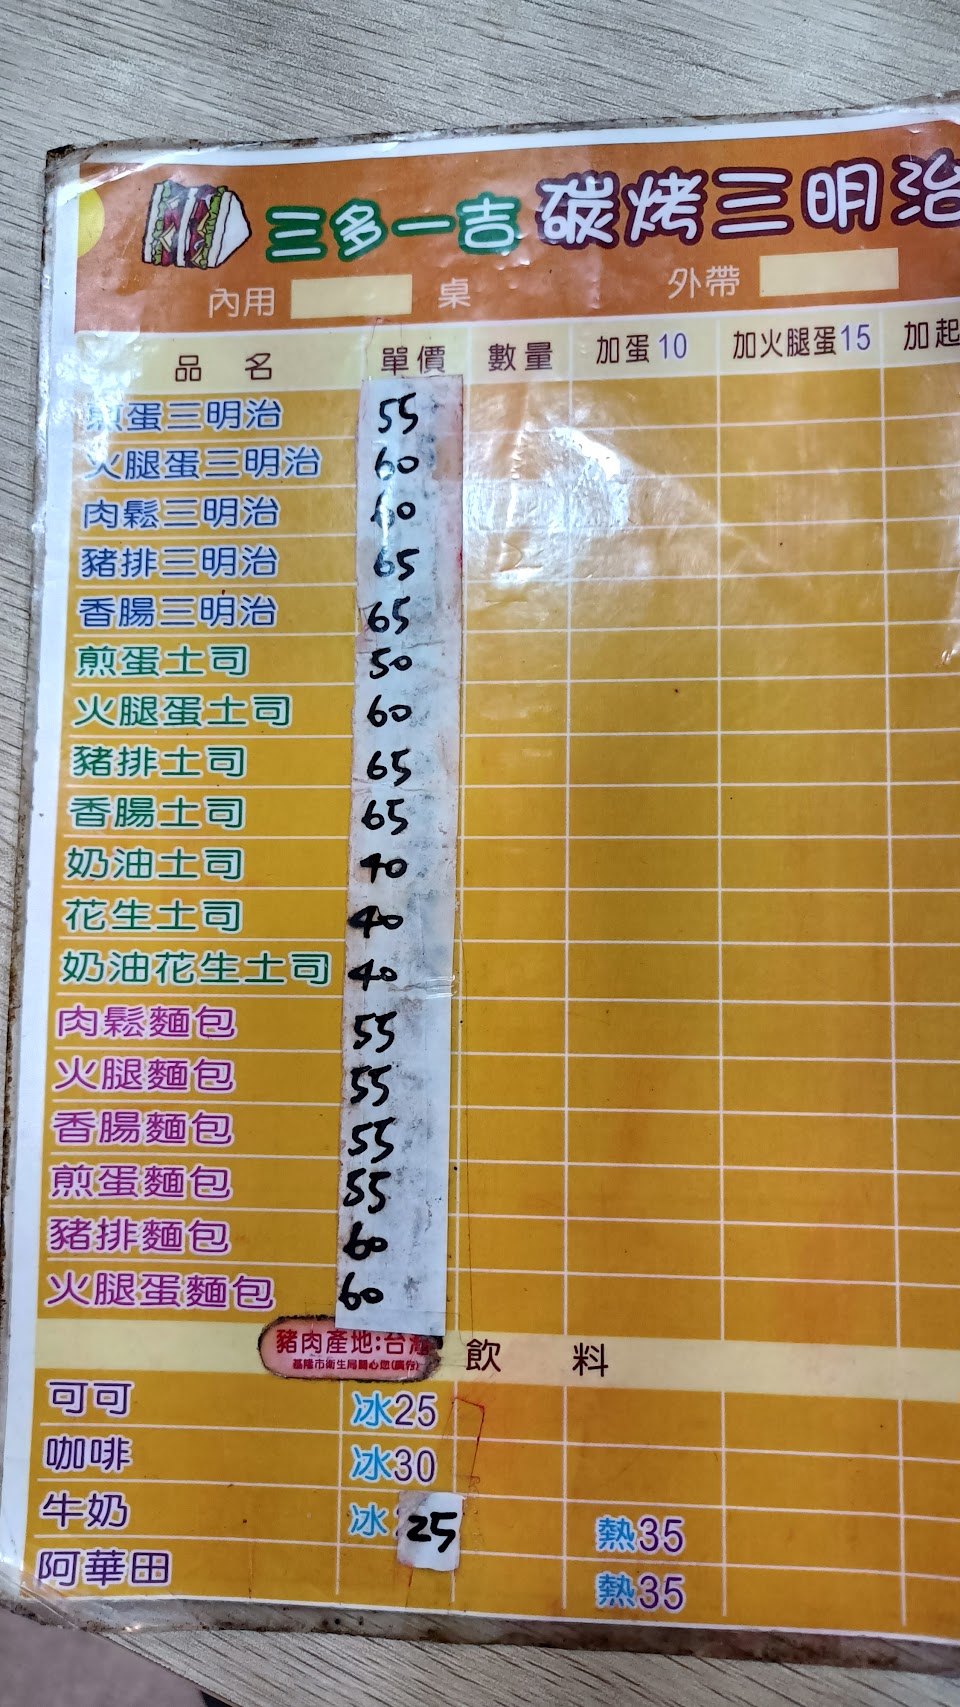 三多一吉 碳烤三明治
內用 桌 外帶
品名 單價 數量 加蛋10 加火腿蛋15 加起
煎蛋三明治 55
火腿蛋三明治 60
肉鬆三明治 60
豬排三明治 65
香腸三明治 65
煎蛋土司 50
火腿蛋土司 60
豬排土司 65
香腸土司 65
奶油土司 40
花生土司 40
奶油花生土司 40
肉鬆麵包 55
火腿麵包 55
香腸麵包 55
煎蛋麵包 55
豬排麵包 60
火腿蛋麵包 60
豬肉產地:台灣
基隆市衛生局關心您(廣告)
飲料
可可 冰25
咖啡 冰30
牛奶 冰25 熱35
阿華田 熱35